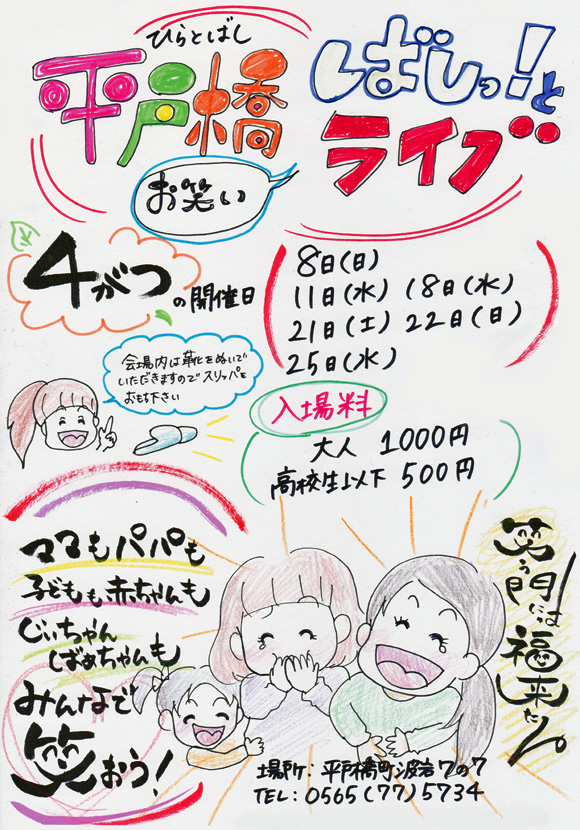 ひらとばし
平戸橋
ばしっ!と
お笑い
ライブ
4がつの開催日
8日(日)
11日(水) 18日(水)
21日(土) 22日(日)
25日(水)
会場内は靴をぬいで
いただきますのでスリッパを
おもち下さい
入場料
大人 1000円
高校生以下 500円
ママもパパも
子どもも赤ちゃんも
じぃちゃん
ばぁちゃんも
みんなで
笑おう!
笑う門には福来たる
場所:平戸橋町波岩7の7
TEL:0565(77)5734